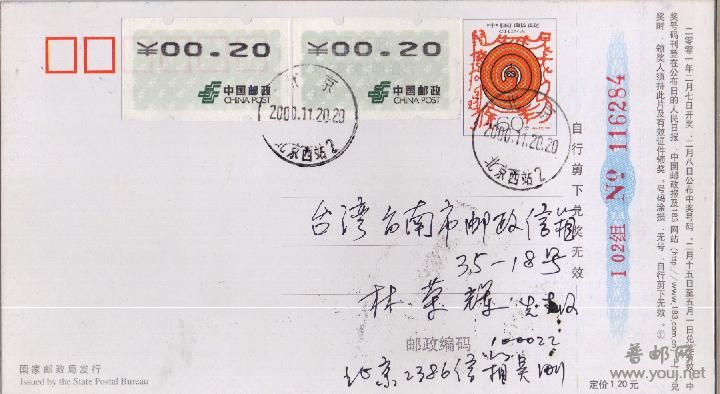 ¥00.20
中国邮政
CHINA POST
¥00.20
中国邮政
CHINA POST
中国邮政
CHINA
60
北京
2000.11.20.20
北京西站2
2000.11.20.20
北京西站2
台湾台南市邮政信箱
35-18号
林荣辉先生收
邮政编码 100022
北京2386信箱吴刚
国家邮政局发行
Issued by the State Postal Bureau
定价1.20元
自行剪下兑奖无效
102组 No 116284
二零零一年二月七日开奖,二月八日公布中奖号码,二月十五日至五月一日兑奖
奖号码刊登在公布日的人民日报、中国邮政报及183网站(http://www.183.com.cn)上
奖时,领奖人须持此片及有效证件领奖。号码涂损、无号、自行剪下无效。
普邮网
www.youj.net